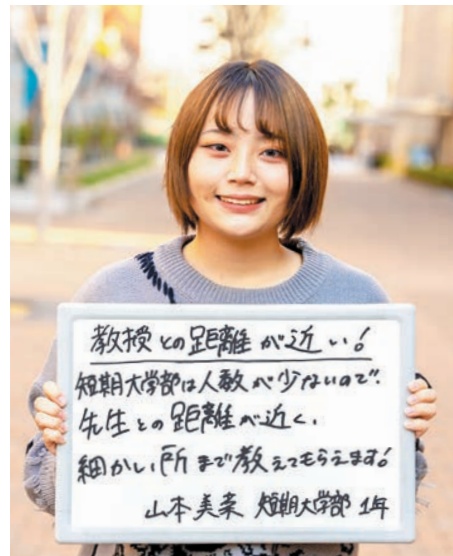 教授との距離が近い!
短期大学部は人数が少ないので
先生との距離が近く、
細かい所まで教えてもらえます!
山本美菜 短期大学部 1年